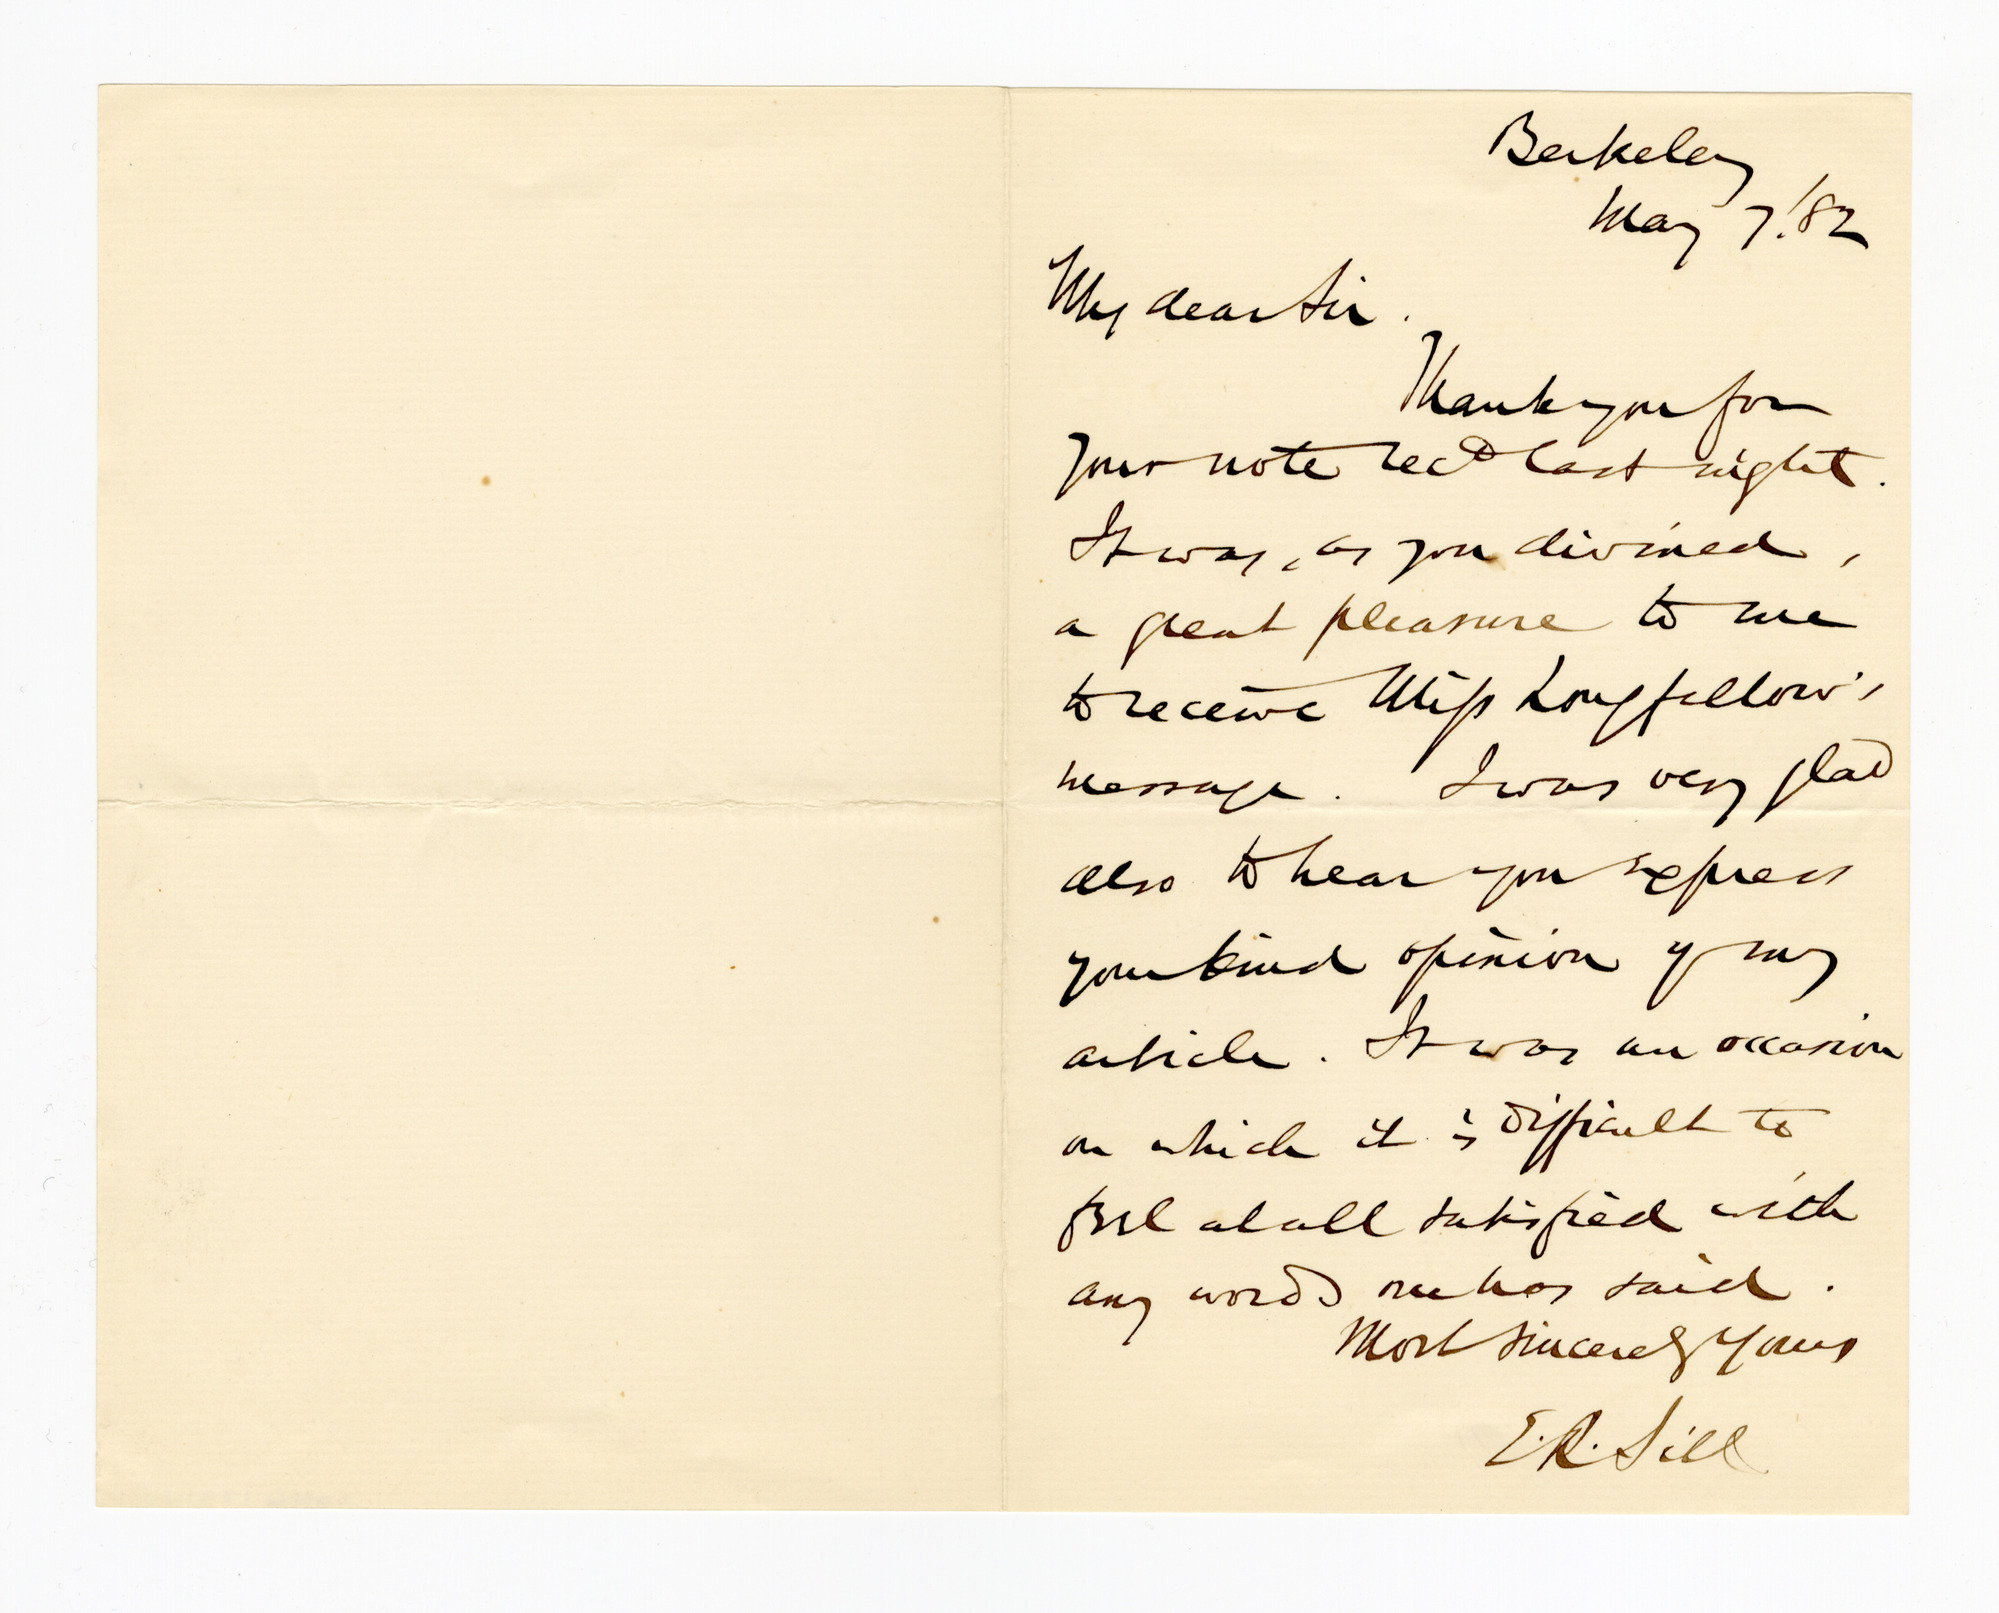 Berkeley
May 7. '82
My dear Sir.
Thank you for
your note recd last night.
It was, as you divined,
a great pleasure to me
to receive Miss Longfellow's
message. I was very glad
also to hear you express
your kind opinion of my
article. It was an occasion
on which it is difficult to
feel at all satisfied with
any words one has said.
Most sincerely yours
E.R. Sill